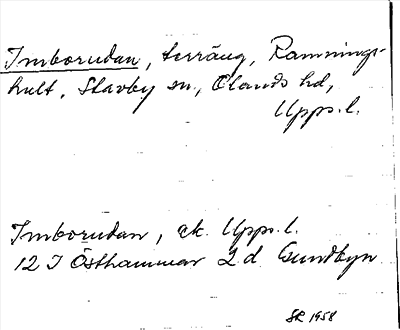 Imborudan, terräng, Rammings-
hult, Slavby sn, Olands hd,
Upps. l.
Imborudan, ek. Upps. l.
12 I Östhammar 2 d Sundbyn
SR 1958